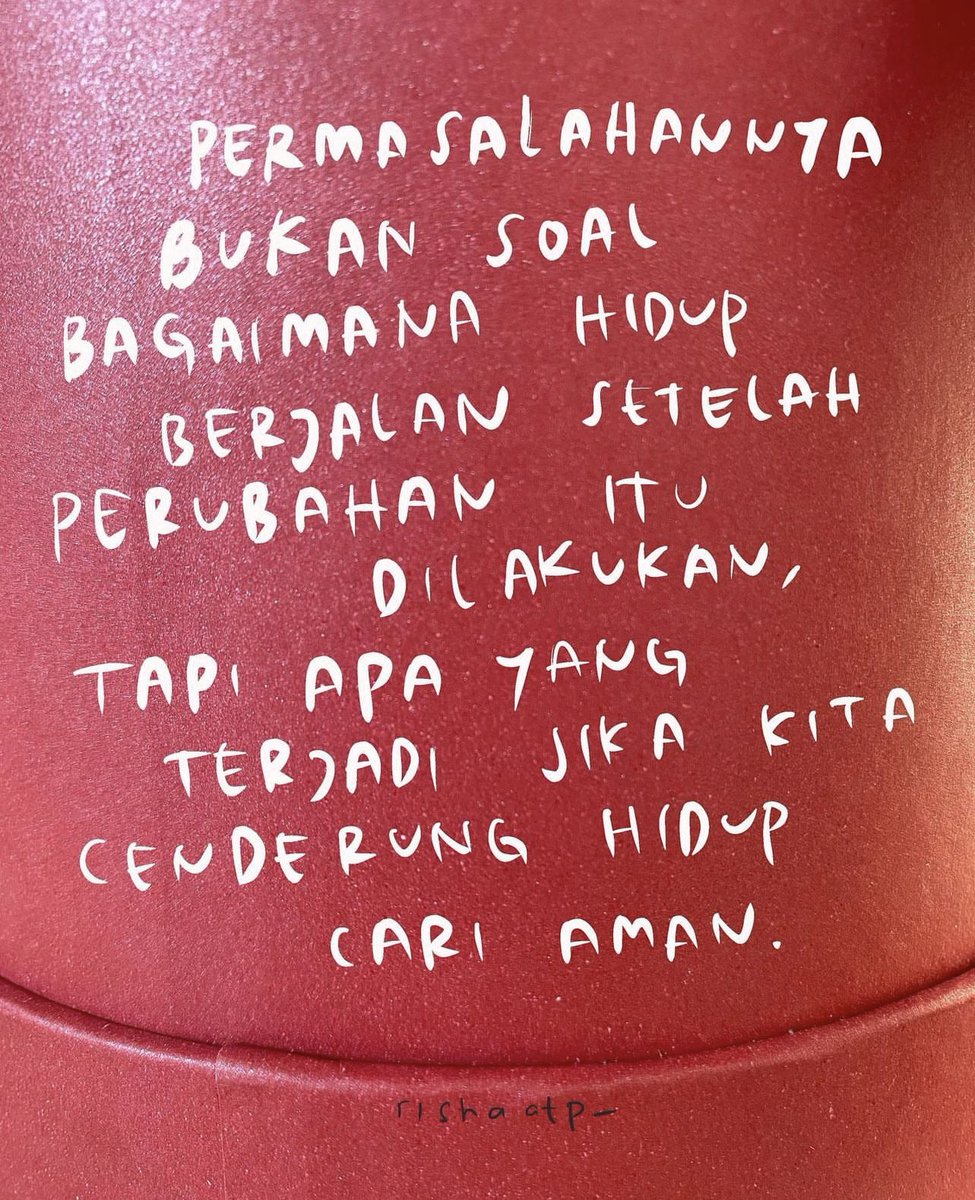 PERMASALAHANNYA
BUKAN SOAL
BAGAIMANA HIDUP
BERJALAN SETELAH
PERUBAHAN ITU
DILAKUKAN,
TAPI APA YANG
TERJADI JIKA KITA
CENDERUNG HIDUP
CARI AMAN.
rishaatp_